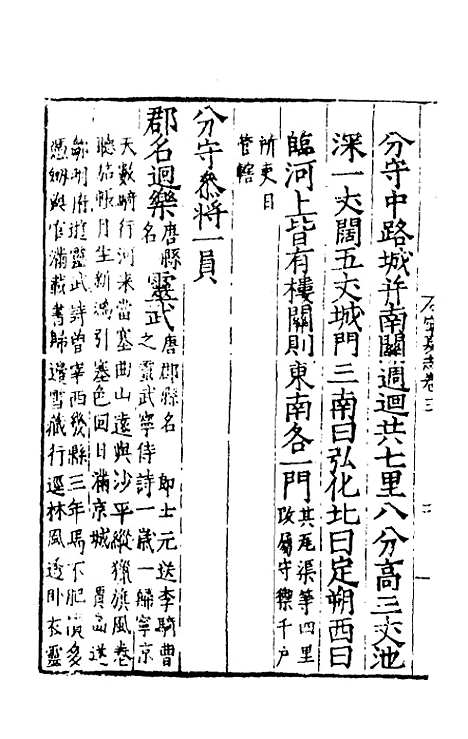 寧夏志卷三
二
分守中路城并南關週迴共七里八分高三丈池
深一丈闊五丈城門三南曰弘化北曰定朔西曰
臨河上皆有樓關則東南各一門
其瓦渠等四里
改屬守禦千戶
所吏目
管轄
分守叅將一員
郡名迴樂唐縣名靈武唐郡縣名 郎士元送李騎曹
之靈武寧侍詩一歲一歸寧京
天數騎行河來當塞曲山遠與沙平縱獵旗風卷
聽笳帳月生新鴻引塞色回日滿京城 賈島送
鄒明府遊靈武詩曾宰西畿縣三年馬不肥債多
憑劍與官滿載書歸邊雪藏行逕林風透臥衣靈